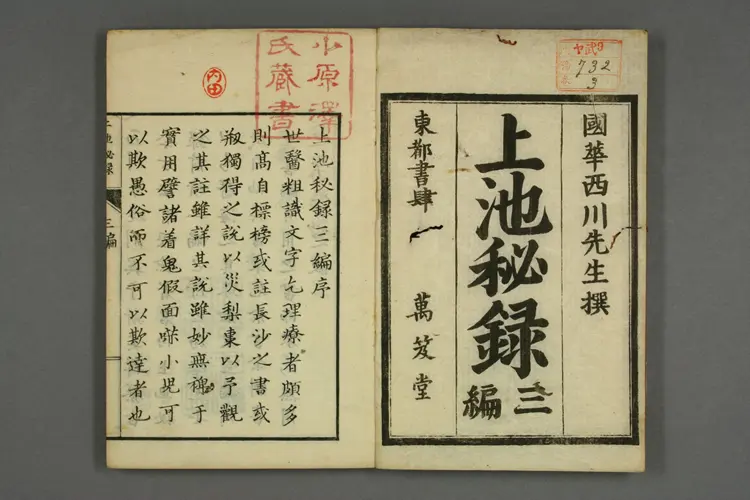 國華西川先生撰
上池秘録
三編
東都書肆 萬笈堂
ヤ武9
732
3
小原澤
氏蔵書
内田
上池秘録三編序
世醫粗識文字乞理療者頗多
則髙自標榜或註長沙之書或
刱獨得之説以災梨棗以予觀
之其註雖詳其説雖妙無裨于
實用譬諸着鬼假面啼小児可
以欺愚俗而不可以欺達者也
上池秘録 三編